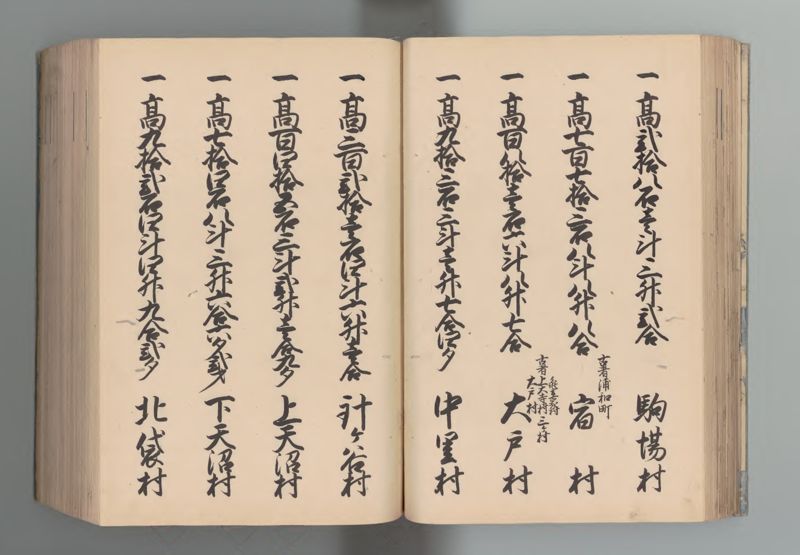 一高弐拾八石壱斗三升弐合 駒場村
一高七百七拾三石八斗八升八合 宿村
古者浦和町
一高百八拾壱石六斗八升七合 大戸村
古者上大寺村 三ヶ村
大戸村
一高九拾三石三斗壱升七合四夕 中里村
一高三百弐拾壱石四斗六升壱合 針ヶ谷村
一高百四拾五石三斗弐升壱合九夕 上天沼村
一高七拾四石八斗三升六合六夕弐才 下天沼村
一高九拾弐石四斗四升九合弐夕 北袋村